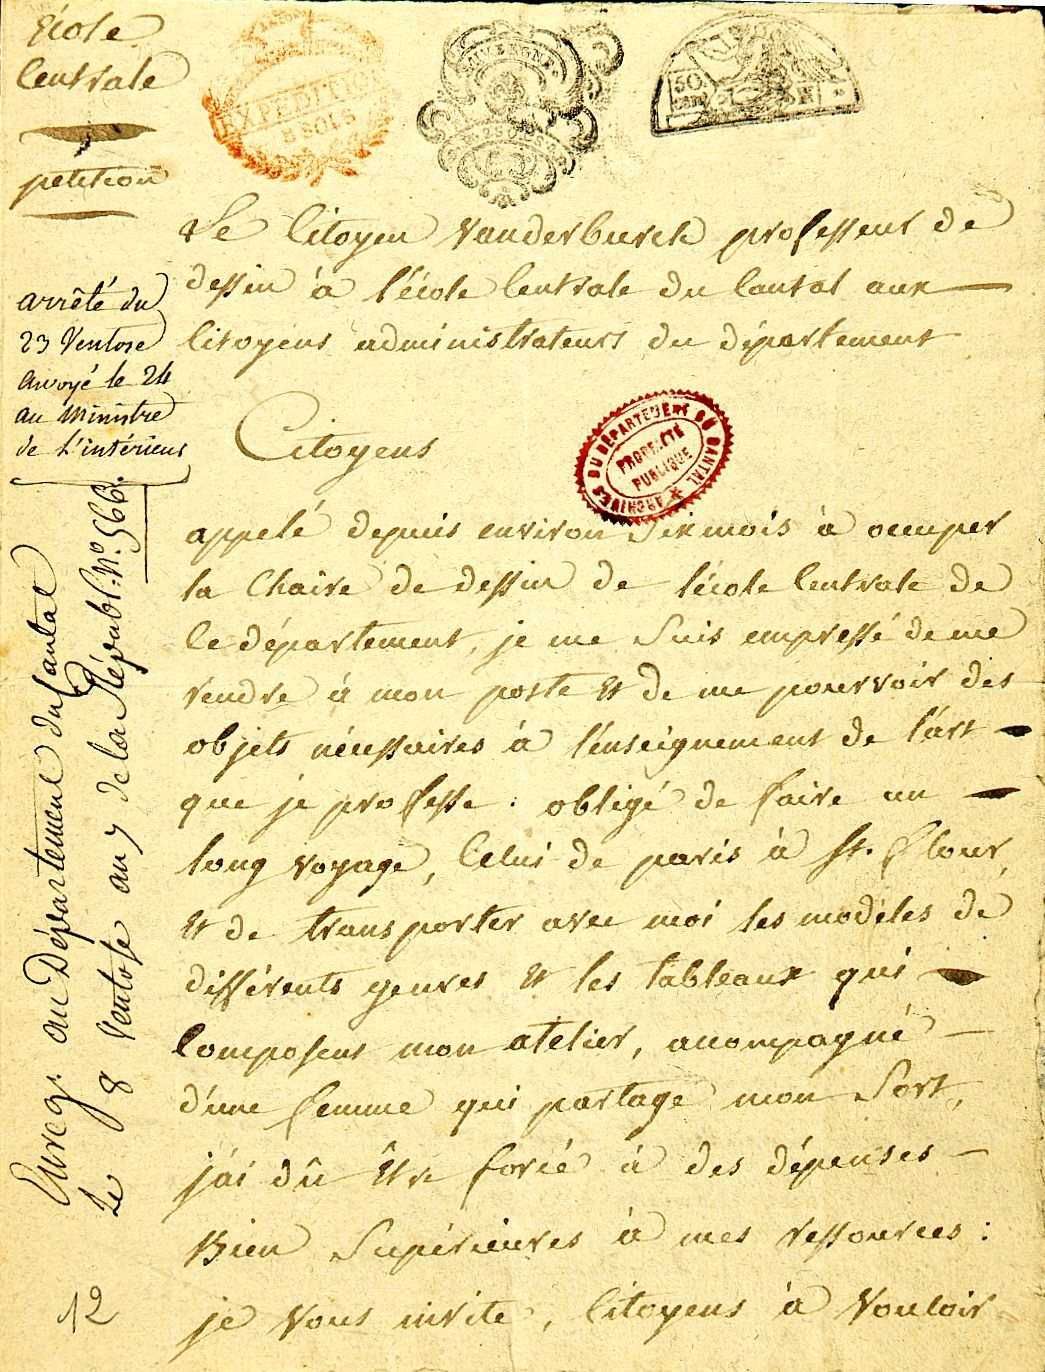 École
Centrale
petition
arrêté du
23 Ventose
envoyé le 24
au Ministre
de L'intérieur
Enreg. au Département du Cantal
Le 8 Ventose an 7 de la Républ. N.º 566.
12
EXPEDITION
SOLS
AUVERGNE
50
ARCHIVES DU DÉPARTEMENT DU CANTAL
PROPRIÉTÉ
PUBLIQUE
Le Citoyen Vanderburch professeur de
dessin à l'école Centrale du Cantal aux
Citoyens administrateurs du département
Citoyens
appelé depuis environ Six mois à occuper
la Chaire de dessin de l'école Centrale de
Ce département, je me Suis empressé de me
rendre à mon poste et de me pourvoir des
objets nécessaires à l'enseignement de l'art
que je professe. obligé de faire un
long voyage, Celui de paris à St. flour,
et de transporter avec moi les modeles de
différents genres et les tableaux qui
Composent mon atelier, acompagné
d'une femme qui partage mon Sort,
j'ai dû être forcé à des dépenses
Bien Supérieures à mes ressources :
je Vous invite, Citoyens à Vouloir